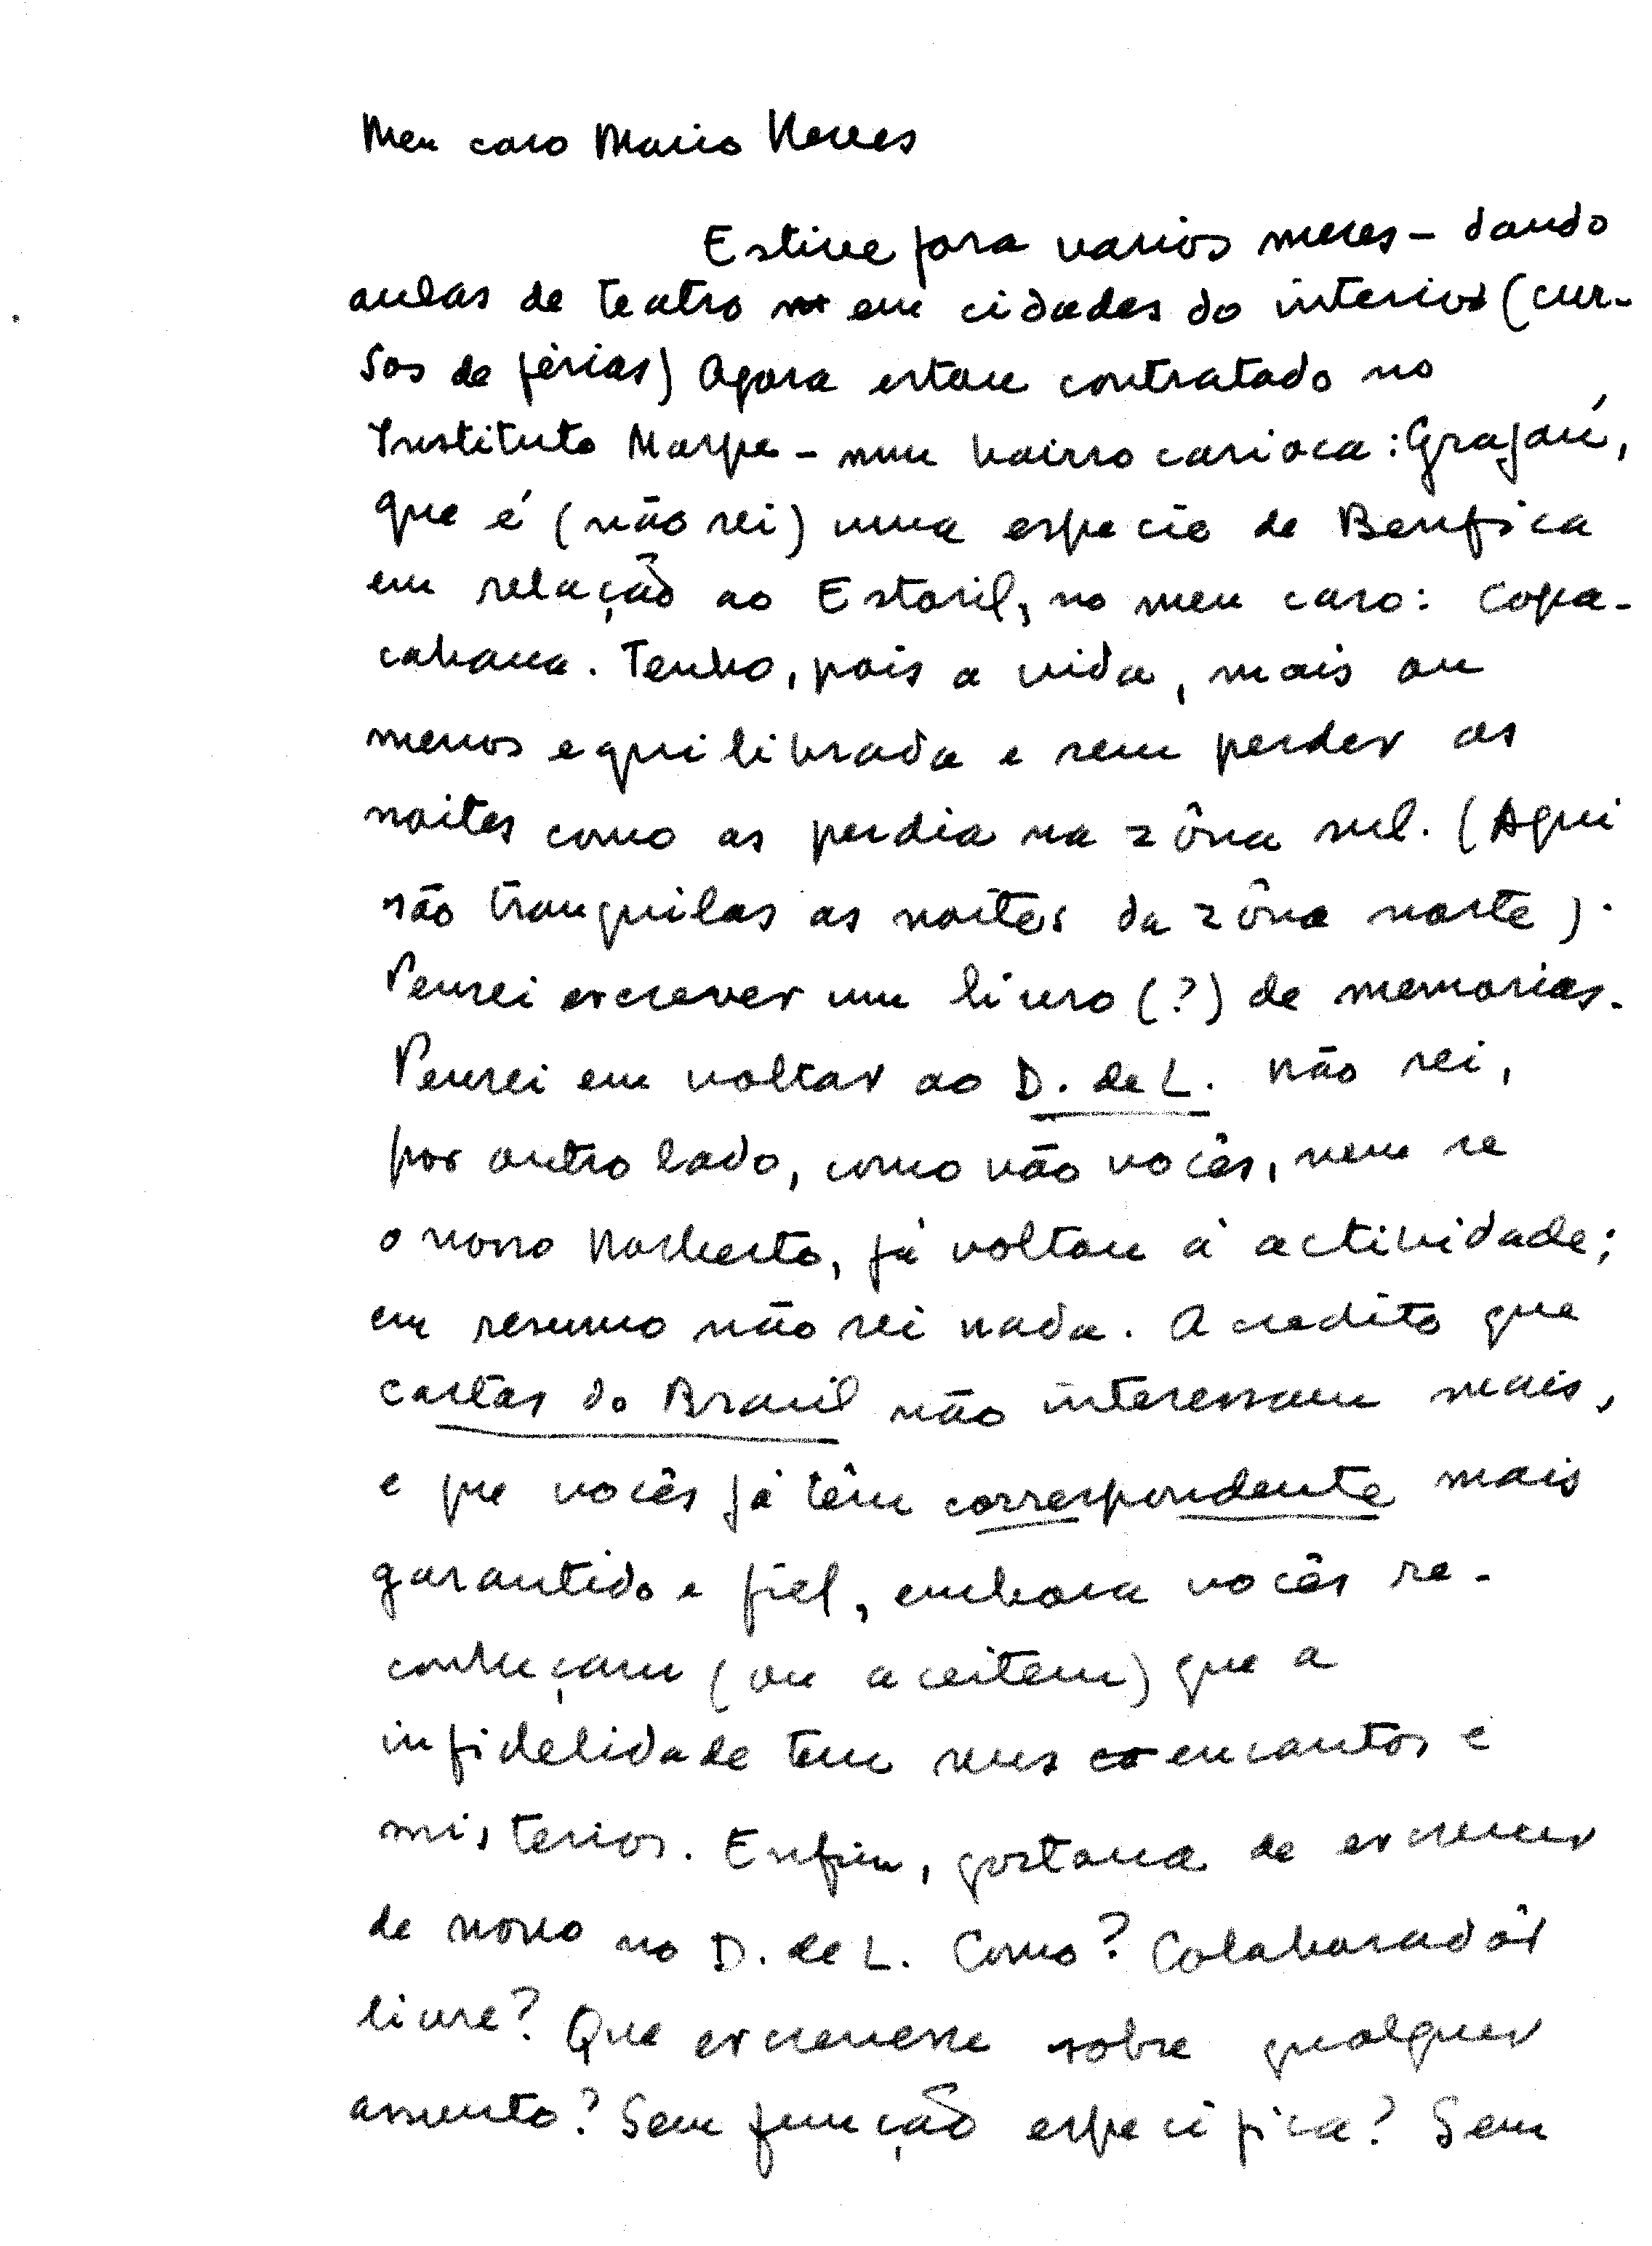 Meu caro Mario Neves
Estive fora varios meses – dando
aulas de teatro em cidades do interior (cur-
sos de férias) Agora estou contratado no
Instituto Marpe – num bairro carioca: Grajaú,
que é (não sei) uma especie de Benfica
em relação ao Estoril, no meu caso: Copa-
cabana. Tenho, pois a vida, mais ou
menos equilibrada e sem perder as
noites como as perdia na zôna sul. (Aqui
são tranquilas as noites da zôna norte).
Pensei escrever um livro (?) de memorias.
Pensei em voltar ao D. de L. não sei,
por outro lado, como vão vocês, nem se
o nosso Norberto, já voltou á actividade;
em resumo não sei nada. Acredito que
cartas do Brasil não interessam mais,
e que vocês já têm correspondente mais
garantido e fiel, embora vocês re-
conheçam (ou aceitem) que a
infidelidade tem seus encantos e
misterios. Enfim, gostava de escrever
de novo no D. de L. Como? Colaboradôr
livre? Que escrevesse sobre qualquer
assunto? Sem função especifica? Sem